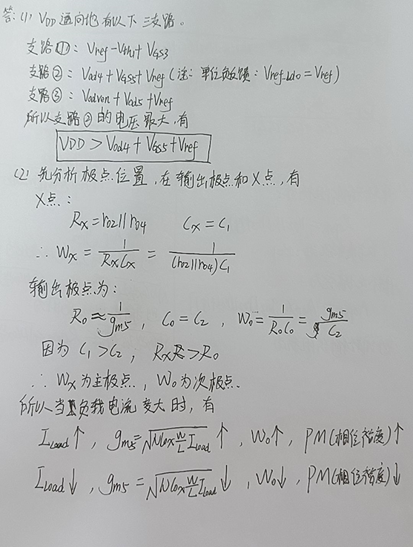 答:(1) VDD 通向地有以下三支路。
支路①: Vref - Vthn + VGS3
支路②: Vod4 + VGS5 + Vref (注: 单位负反馈: Vref_ldo = Vref)
支路③: Vodvon + Vod5 + Vref
所以支路②的电压最大,有
VDD > Vod4 + VGS5 + Vref
(2) 先分析极点位置,在输出极点和X点,有
X点:
Rx = ro2 || ro4 Cx = C1
∴ Wx = 1/(RxCx) = 1/((ro2||ro4)C1)
输出极点为:
Ro ≈ 1/gm5 , Co = C2 , Wo = 1/(RoCo) = gm5/C2
因为 C1 > C2 , Rx > Ro
∴ Wx为主极点, Wo为次极点.
所以当负载电流变大时,有
ILoad↑ , gm5 = √(NCox W/L ILoad) ↑ , Wo↑ , PM(相位裕度)↑
ILoad↓ , gm5 = √(NCox W/L ILoad) ↓ , Wo↓ , PM(相位裕度)↓